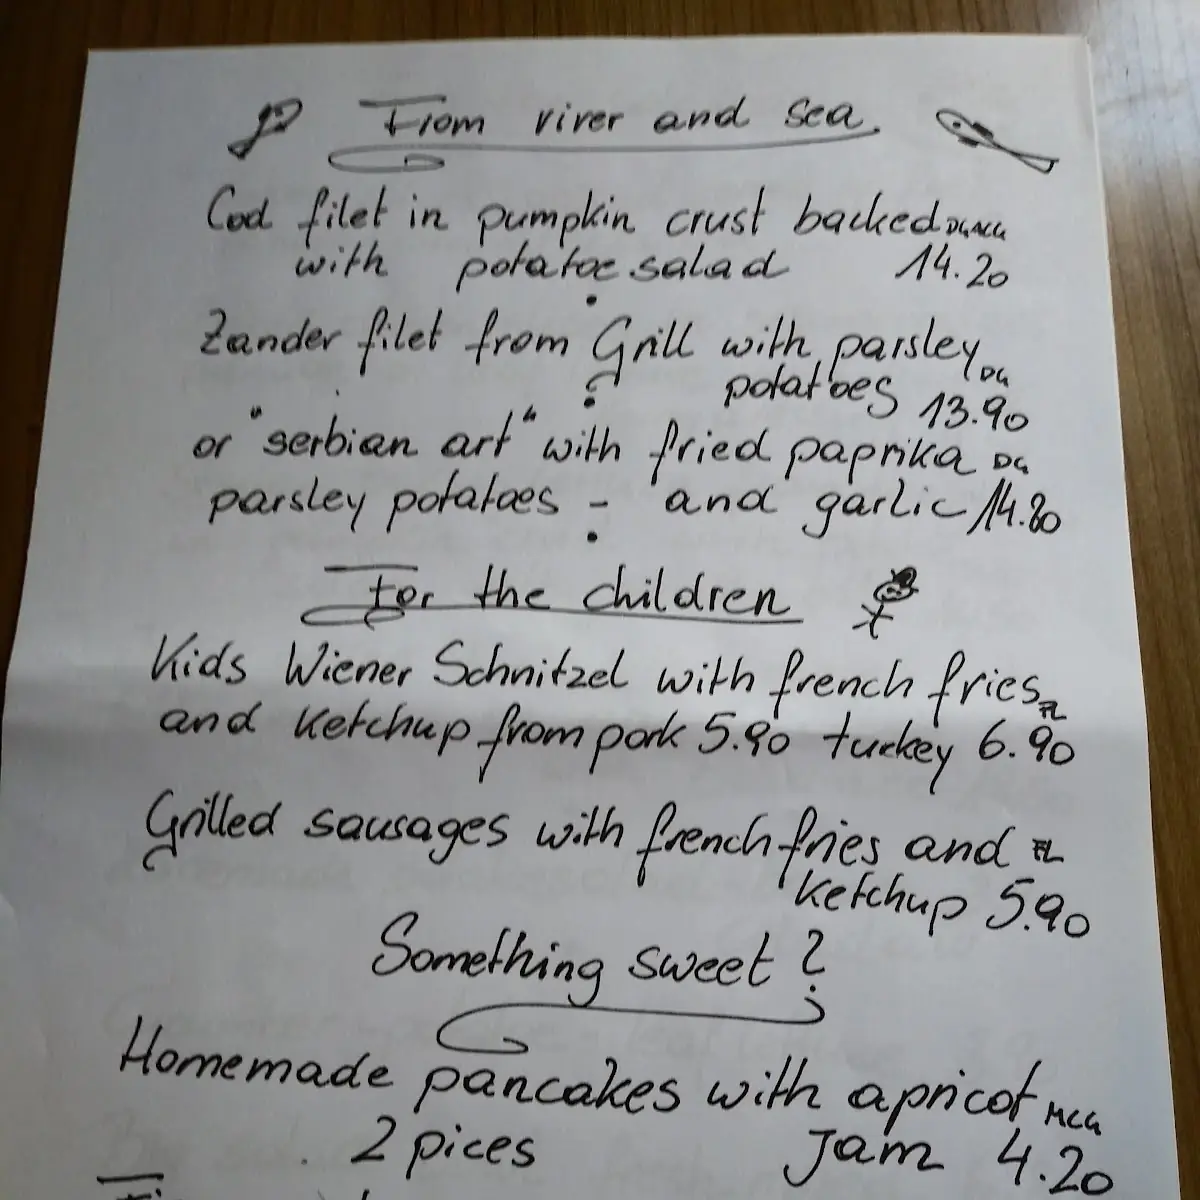 From river and sea.
Cod filet in pumpkin crust backed
with potatoe salad 14.20
Zander filet from Grill with parsley DG
potatoes 13.90
or "serbian art" with fried paprika DG
parsley potatoes - and garlic 14.80
For the children
Kids Wiener Schnitzel with french fries
and Ketchup from pork 5.90 turkey 6.90
Grilled sausages with french fries and
Ketchup 5.90
Something sweet?
Homemade pancakes with apricot MCG
2 pices Jam 4.20